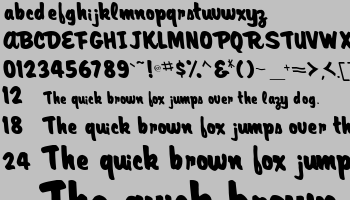 abcdefghijklmnopqrstuvwxyz
ABCDEFGHIJKLMNOPQRSTUVWX
0123456789`~!@#$%^&*()-_+=>,<.[
12 The quick brown fox jumps over the lazy dog.
18 The quick brown fox jumps over the
24 The quick brown fox jump
The quick brown